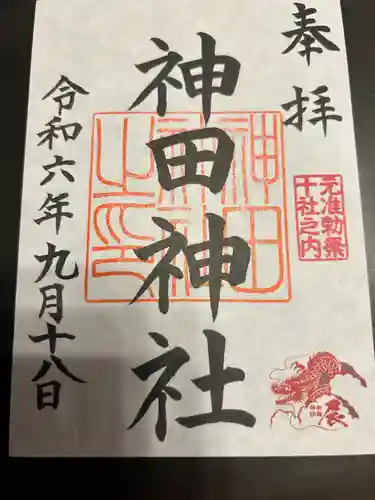 奉拝
元准勅祭
十社之内
神田神社
神田
神社
之印
令和六年九月十八日
辰